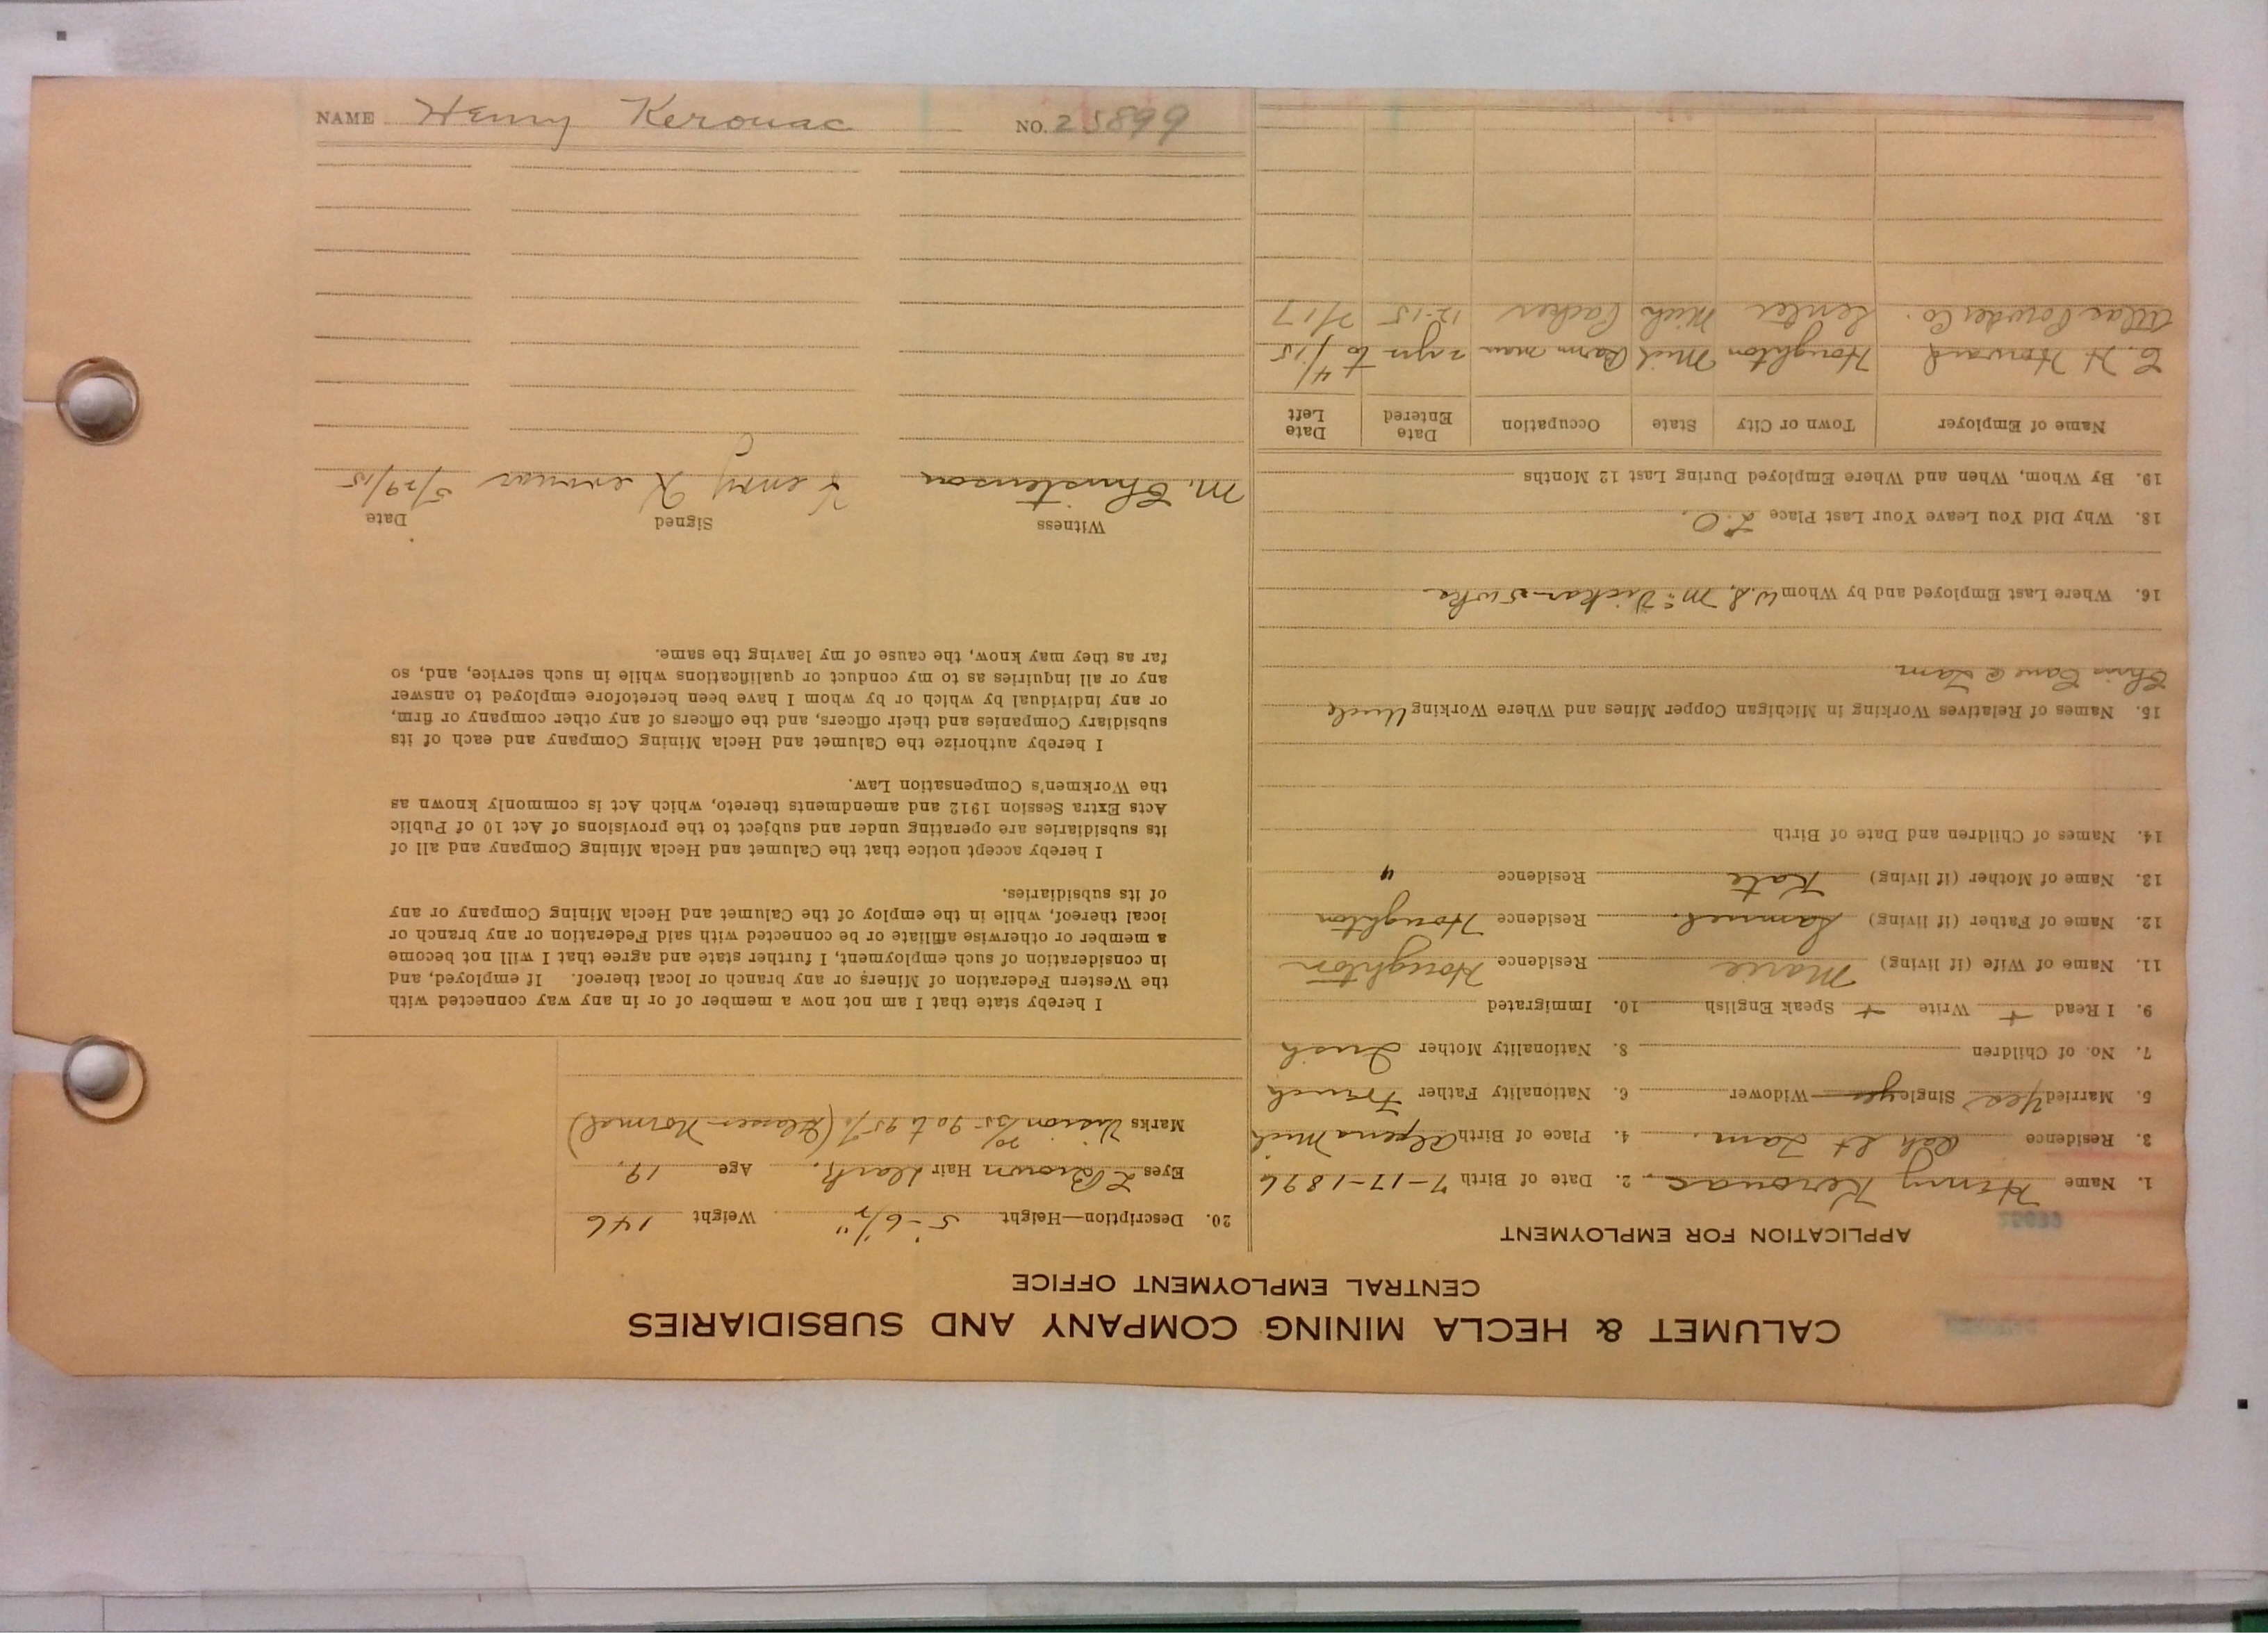 CALUMET & HECLA MINING COMPANY AND SUBSIDIARIES
CENTRAL EMPLOYMENT OFFICE
APPLICATION FOR EMPLOYMENT
1. Name Henry Kerouac 2. Date of Birth 7-17-1896
3. Residence Oak St Lam. 4. Place of Birth Alpena Mich
5. Married Yes Single Widower 6. Nationality Father French
7. No. of Children 8. Nationality Mother Irish
9. I Read + Write + Speak English 10. Immigrated
11. Name of Wife (if living) Marie Residence Houghton
12. Name of Father (if living) Samuel Residence Houghton
13. Name of Mother (if living) Kate Residence "
14. Names of Children and Date of Birth
15. Names of Relatives Working in Michigan Copper Mines and Where Working Uncle
Chris Cane @ Lam.
16. Where Last Employed and by Whom W.S. McVickar - 5 wks.
18. Why Did You Leave Your Last Place L.O.
19. By Whom, When and Where Employed During Last 12 Months
Name of Employer Town or City State Occupation Date Entered Date Left
E. H. Howard Houghton Mich Barn man 2 yrs to 4/15
Atlas Powder Co. Senter Mich Packer 12-15 7/17
20. Description—Height 5-6 1/2" Weight 146
Eyes L Brown Hair Dark. Age 19.
Marks Vision 20/35 - 90 L 95% (Glasses - Normal)
I hereby state that I am not now a member of or in any way connected with
the Western Federation of Miners or any branch or local thereof. If employed, and
in consideration of such employment, I further state and agree that I will not become
a member or otherwise affiliate or be connected with said Federation or any branch or
local thereof, while in the employ of the Calumet and Hecla Mining Company or any
of its subsidiaries.
I hereby accept notice that the Calumet and Hecla Mining Company and all of
its subsidiaries are operating under and subject to the provisions of Act 10 of Public
Acts Extra Session 1912 and amendments thereto, which Act is commonly known as
the Workmen's Compensation Law.
I hereby authorize the Calumet and Hecla Mining Company and each of its
subsidiary Companies and their officers, and the officers of any other company or firm,
or any individual by which or by whom I have been heretofore employed to answer
any or all inquiries as to my conduct or qualifications while in such service, and, so
far as they may know, the cause of my leaving the same.
Witness Signed Date
M. Christenson Henry Kerouac 5/29/15
NAME Henry Kerouac NO. 25899